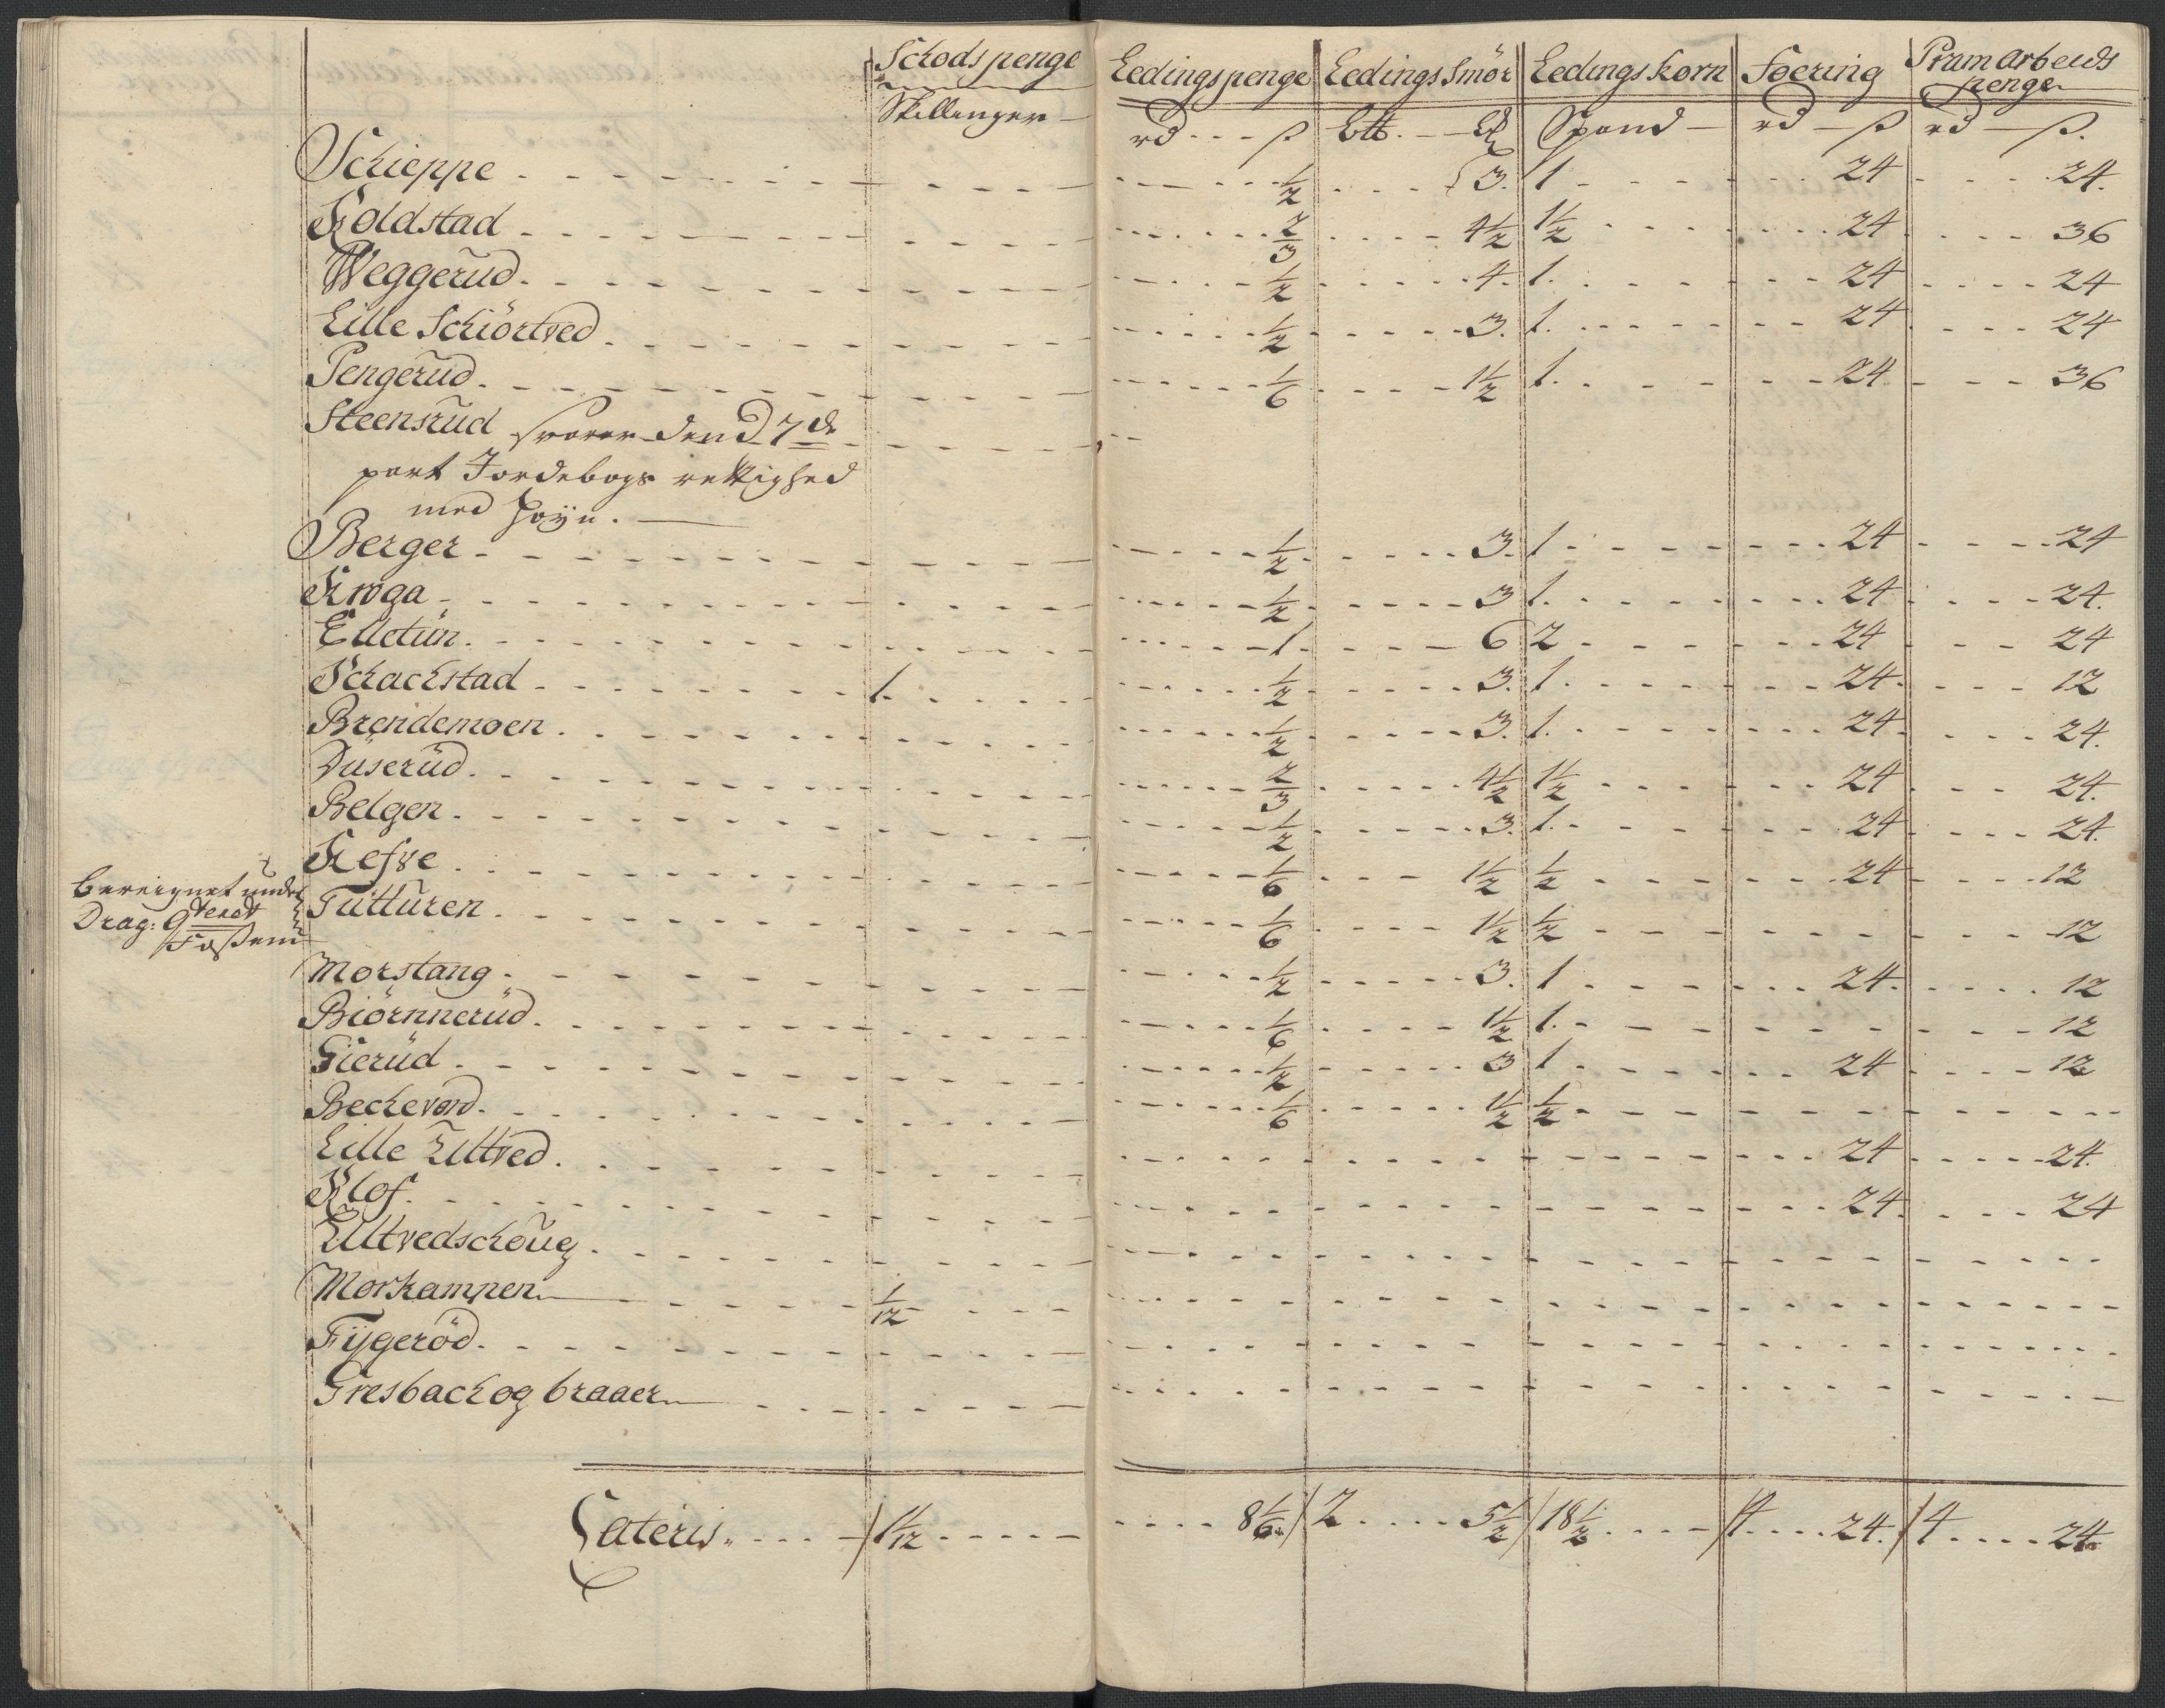 Schodspenge Ledingspenge Ledings Smör Ledings Korn Foering Pramarbeids
penge
Skillinger rd ß rd ß rd ß.
Schieppe 1/2 3. 1 24 24.
Koldstad 2/3 4 1/2 1 1/2 24 36
Weggerud 1/2 4. 1. 24 24
Lille Schiörtved 1/2 3. 1. 24 24
Pengerud 1/6 1 1/2 1. 24 36
Steensrud svarer dend 7de
part Jordebogs rettighed
med
Berger 1/2 3. 1 24 24
Kroga 1/2 3 1. 24 24.
Elletun 1. 6 2 24 24
Schachstad 1. 1/2 3. 1. 24. 12
Brendemoen 1/2 3. 1. 24. 24.
Duserud 2/3 4 1/2 1 1/2 24 24.
Belgen 1/2 3. 1. 24 24.
Kefse 1/6 1 1/2 1/2 24 12
bereignet under
Drag: Qterdt
Fossem
Tutturen 1/6 1 1/2 1/2 12
Morstang 1/2 3. 1 24. 12
Biörnnerud 1/6 1 1/2 1. 12
Gierud 1/2 3 1 24 12
Beckevord 1/6 1 1/2 1/2
Lille Ultved 24 24.
Klof 24. 24
Ultvedschoug
Morkampen 1/12
Fÿgeröd
Gresbach og braaer
Lateris 1 1/12 8 1/6 2 5 1/2 18 1/2 4 24. 4 24